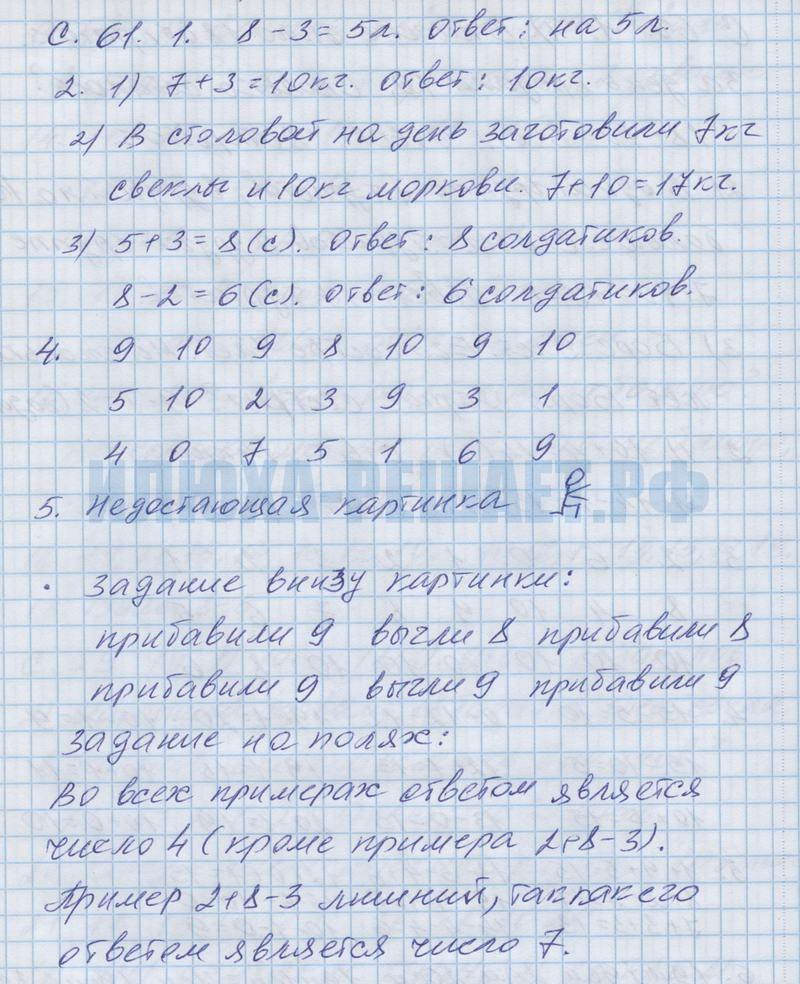 С. 61. 1. 8 - 3 = 5л. Ответ: на 5л.
2. 1) 7 + 3 = 10кг. Ответ: 10кг.
2) В столовой на день заготовили 7кг
свеклы и 10кг моркови. 7 + 10 = 17кг.
3) 5 + 3 = 8 (с). Ответ: 8 солдатиков.
8 - 2 = 6 (с). Ответ: 6 солдатиков.
4. 9 10 9 8 10 9 10
5 10 2 3 9 3 1
4 0 7 5 1 6 9
ИЛЮХА-РЕШАЕТ.РФ
5. Недостающая картинка
· Задание внизу картинки:
прибавили 9 вычли 8 прибавили 8
прибавили 9 вычли 9 прибавили 9
Задание на полях:
Во всех примерах ответом является
число 4 (кроме примера 2+8-3).
Пример 2+8-3 лишний, так как его
ответом является число 7.